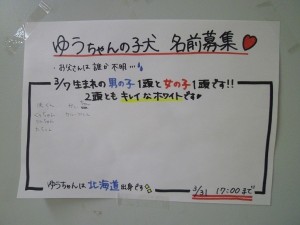 ゆうちゃんの子犬 名前募集♥
・お父さんは誰か不明…
3/7 生まれの男の子1頭と女の子1頭です!!
2頭とも キレイなホワイトです♥
ゆうちゃんは 北海道出身です
3/31 17:00まで